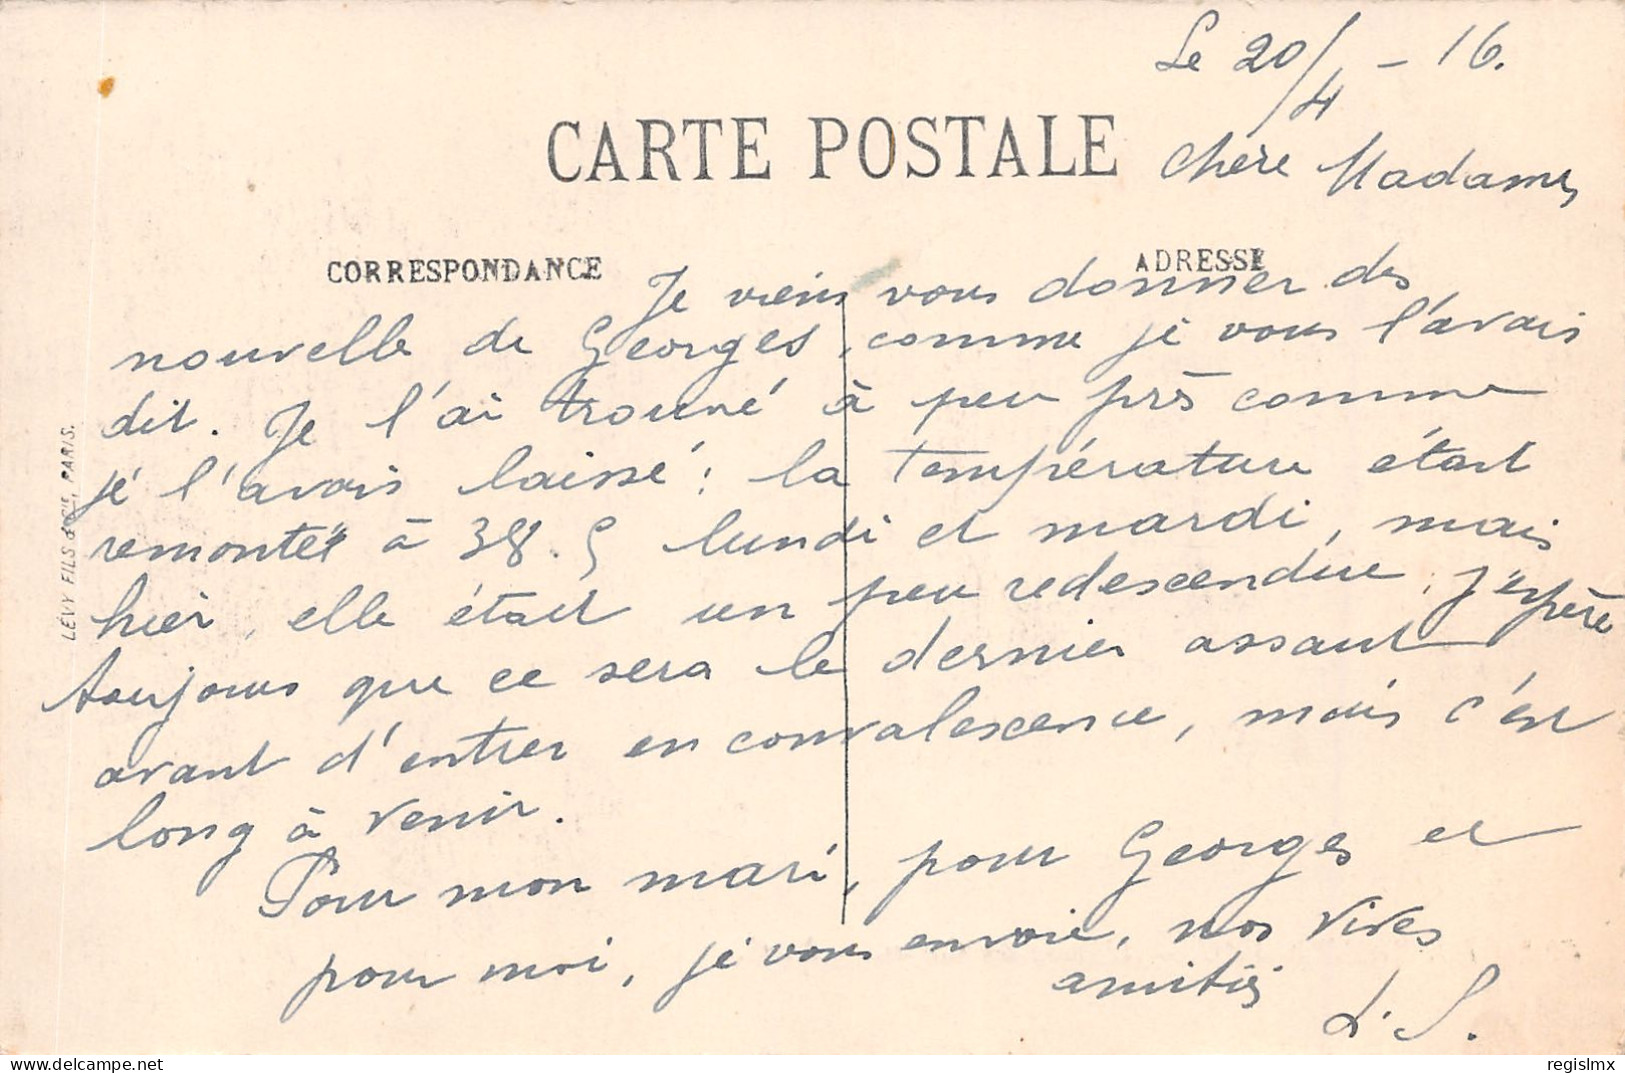 Le 20/4 - 16.
CARTE POSTALE
Chère Madame,
CORRESPONDANCE
ADRESSE
Je viens vous donner des
nouvelle de Georges, comme je vous l'avais
dit. Je l'ai trouvé à peu près comme
je l'avais laissé : la température était
remontée à 38.5 lundi et mardi, mais
hier, elle était un peu redescendue, j'espère
toujours que ce sera le dernier assaut
avant d'entrer en convalescence, mais c'est
long à venir.
Pour mon mari, pour Georges et
pour moi, je vous envoie, nos vives
amitiés
L. S.
LÉVY FILS & Cie, PARIS.
delcampe.net
regislmx